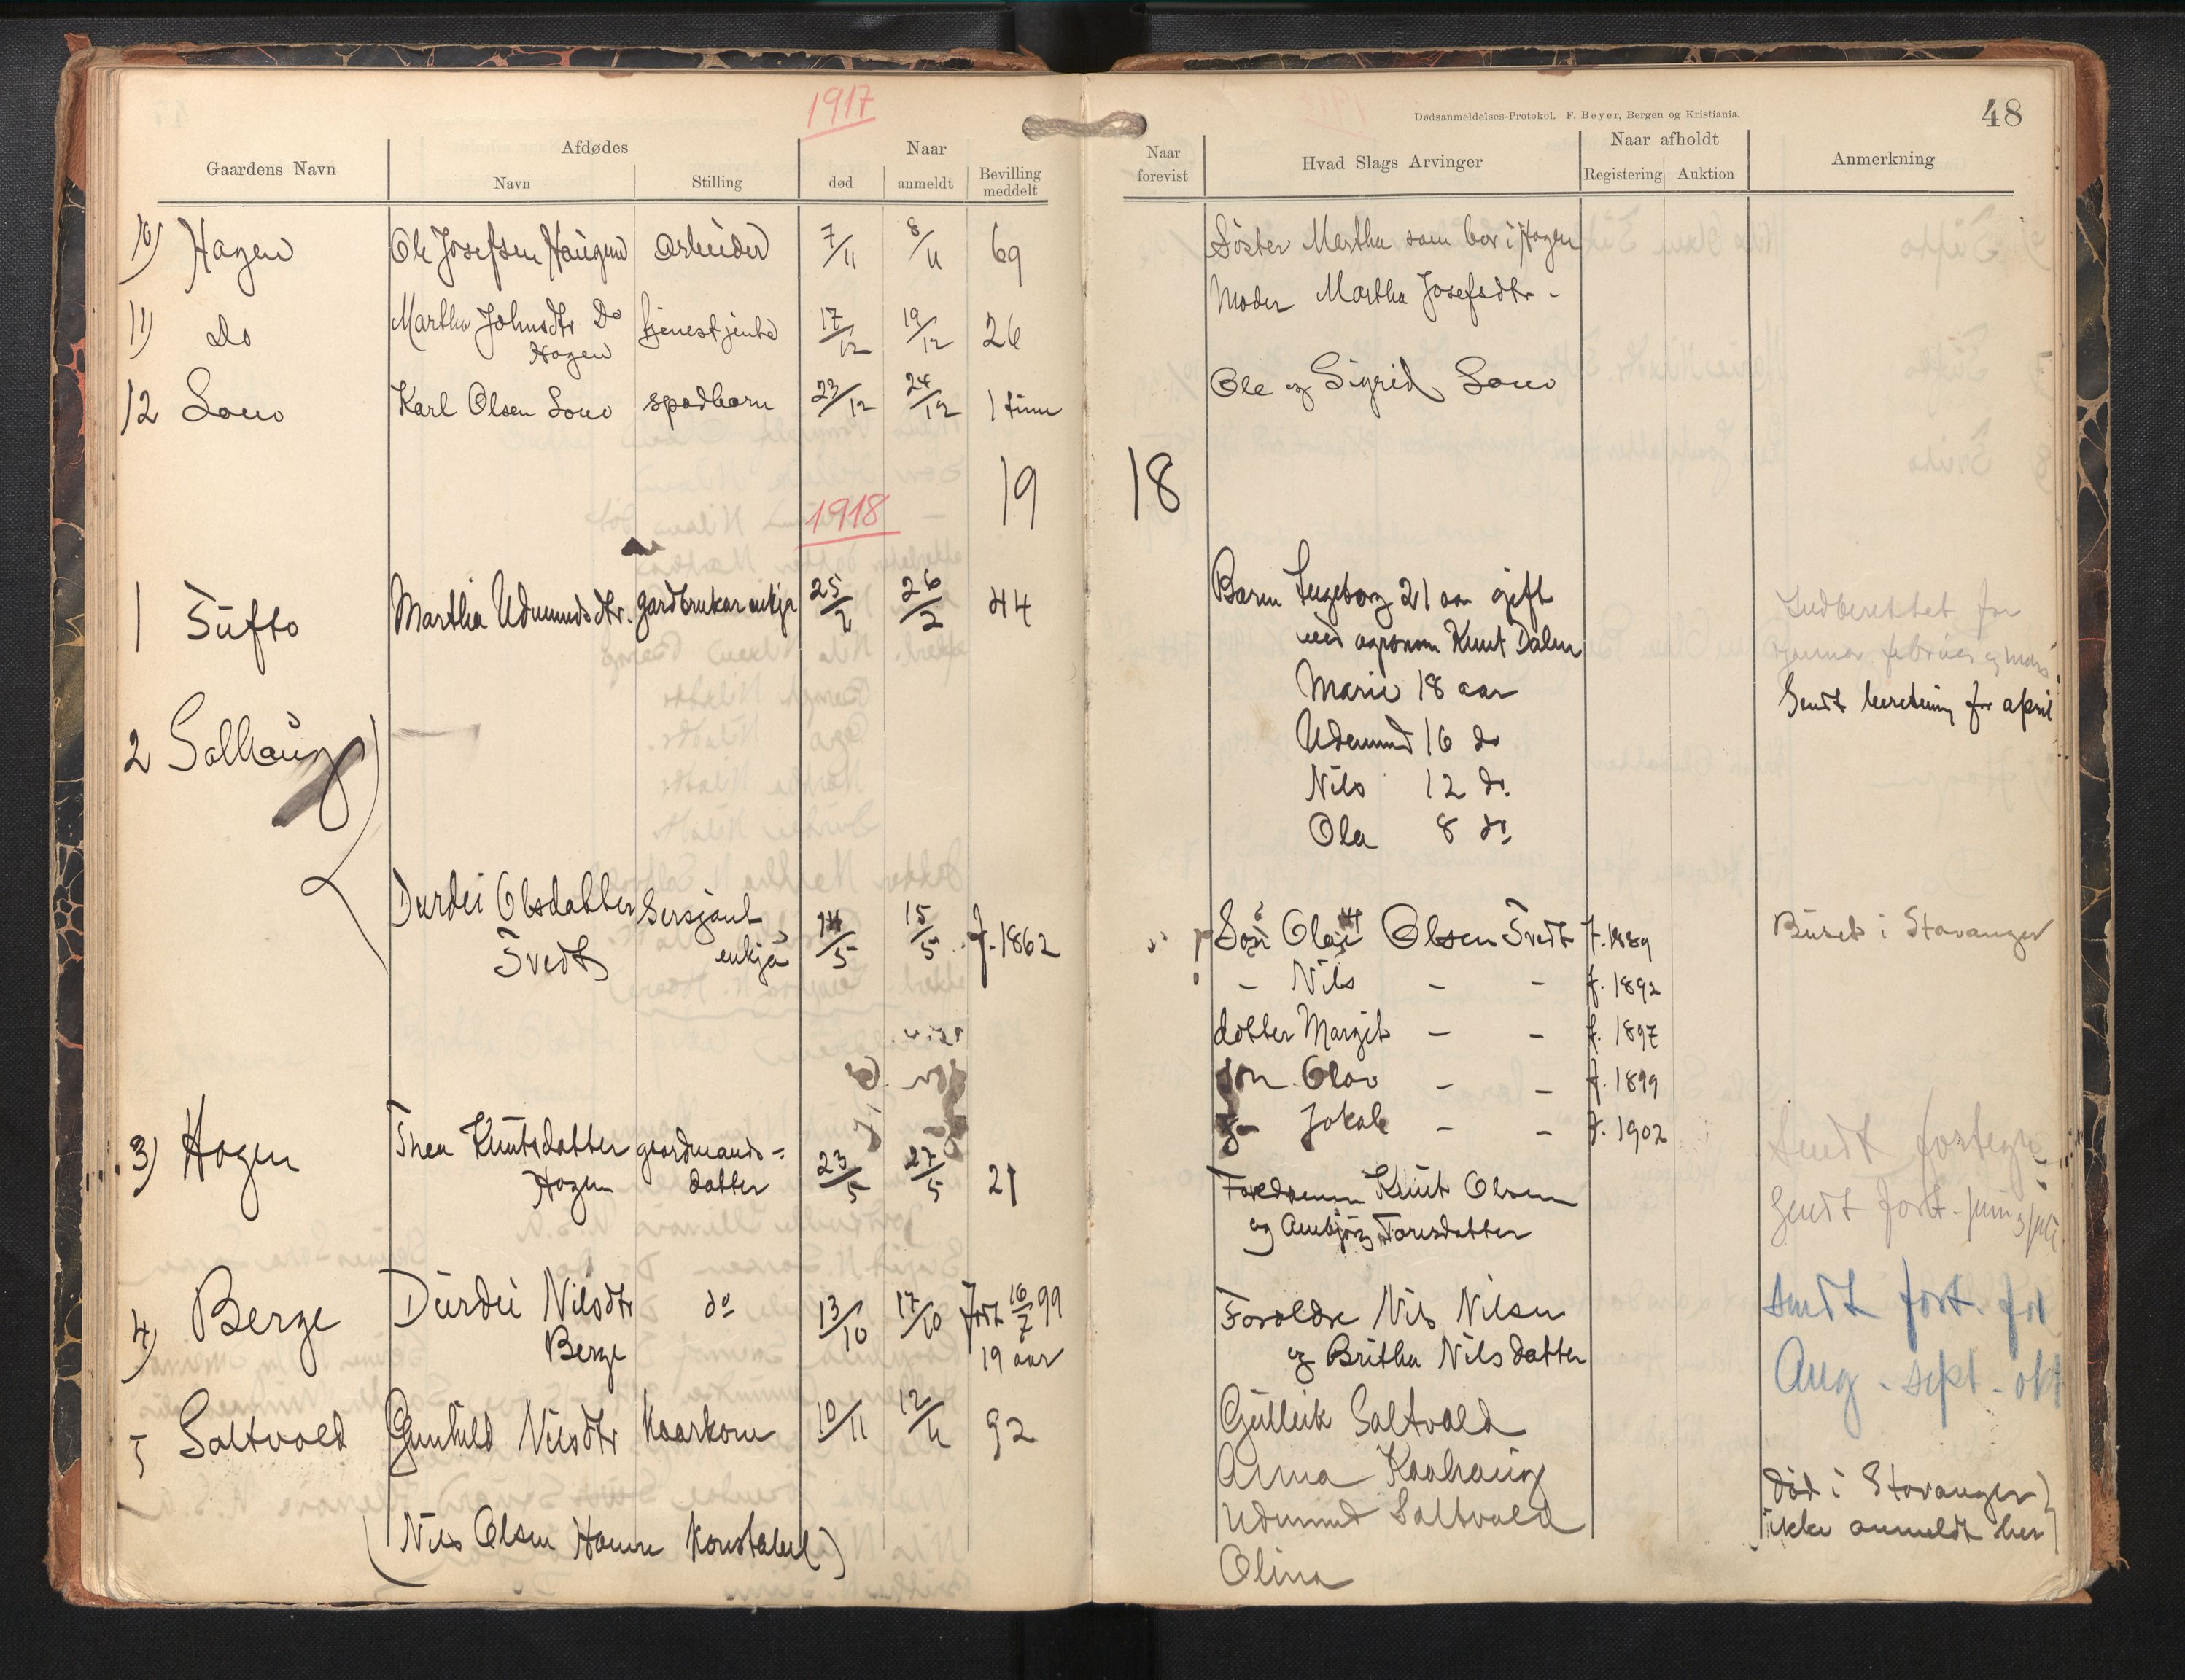 1917
Dødsanmeldelses-Protokol. F. Beyer, Bergen og Kristiania.
48
Gaardens Navn
Afdødes
Navn
Stilling
Naar
død
anmeldt
Bevilling meddelt
Naar forevist
Hvad Slags Arvinger
Naar afholdt
Registering
Auktion
Anmerkning
10) Hagen Ole Josefsen Haugen arbeider 7/11 8/11 69 Søster Martha som bor i Hagen
11) Do Martha Johnsdtr Do tjenestjente 17/12 19/12 26 Moder Martha Josefsdtr -
Hagen
12 Sono Karl Olsen Sono spædbarn 23/12 24/12 1 time Ole og Sigrid Sono
19 18
1918
1 Tufto Martha Udmundsdtr. gardbrukar enkja 25/2 26/2 44 Barn Ingeborg 21 aar gift
med agronom Knut Dalen
Marie 18 aar
Udmund 16 do
Nils 12 do.
Ola 8 do
Indberettet for
januar februar og mars
Sendt beretning for april
2 Solhaug
Durdei Olsdatter Sersjant 14/5 15/5 f. 1862 Søn Olai Olsen Tvedt f. 1889 Busat i Stavanger
Tvedt enkja
- Nils - - f. 1892
dotter Margit - - f. 1897
søn Olav - - f. 1899
Jakob - - f. 1902
3) Hagen Thea Knutsdatter gaardmands- 23/5 27/5 21 Foreldrenne Knut Olsen
Hagen datter
og Ambjørg Toresdatter
Sendt fortegn
Sendt fort. juni og juli
4) Berge Durdei Nilsdtr do 13/10 17/10 født 16/7 99 Foreldre Nils Nilsen
Berge 19 aar og Britha Nilsdatter
Sendt fort. for
Aug - sept - okt
5 Saltvold Gunhild Nilsdtr Kaarkone 10/11 12/11 92 Gulleik Saltvold
Anna Kaahaug
Udmund Saltvold
Olina
(Nils Olsen Hamre Konstabel)
død i Stavanger
ikke anmeldt her